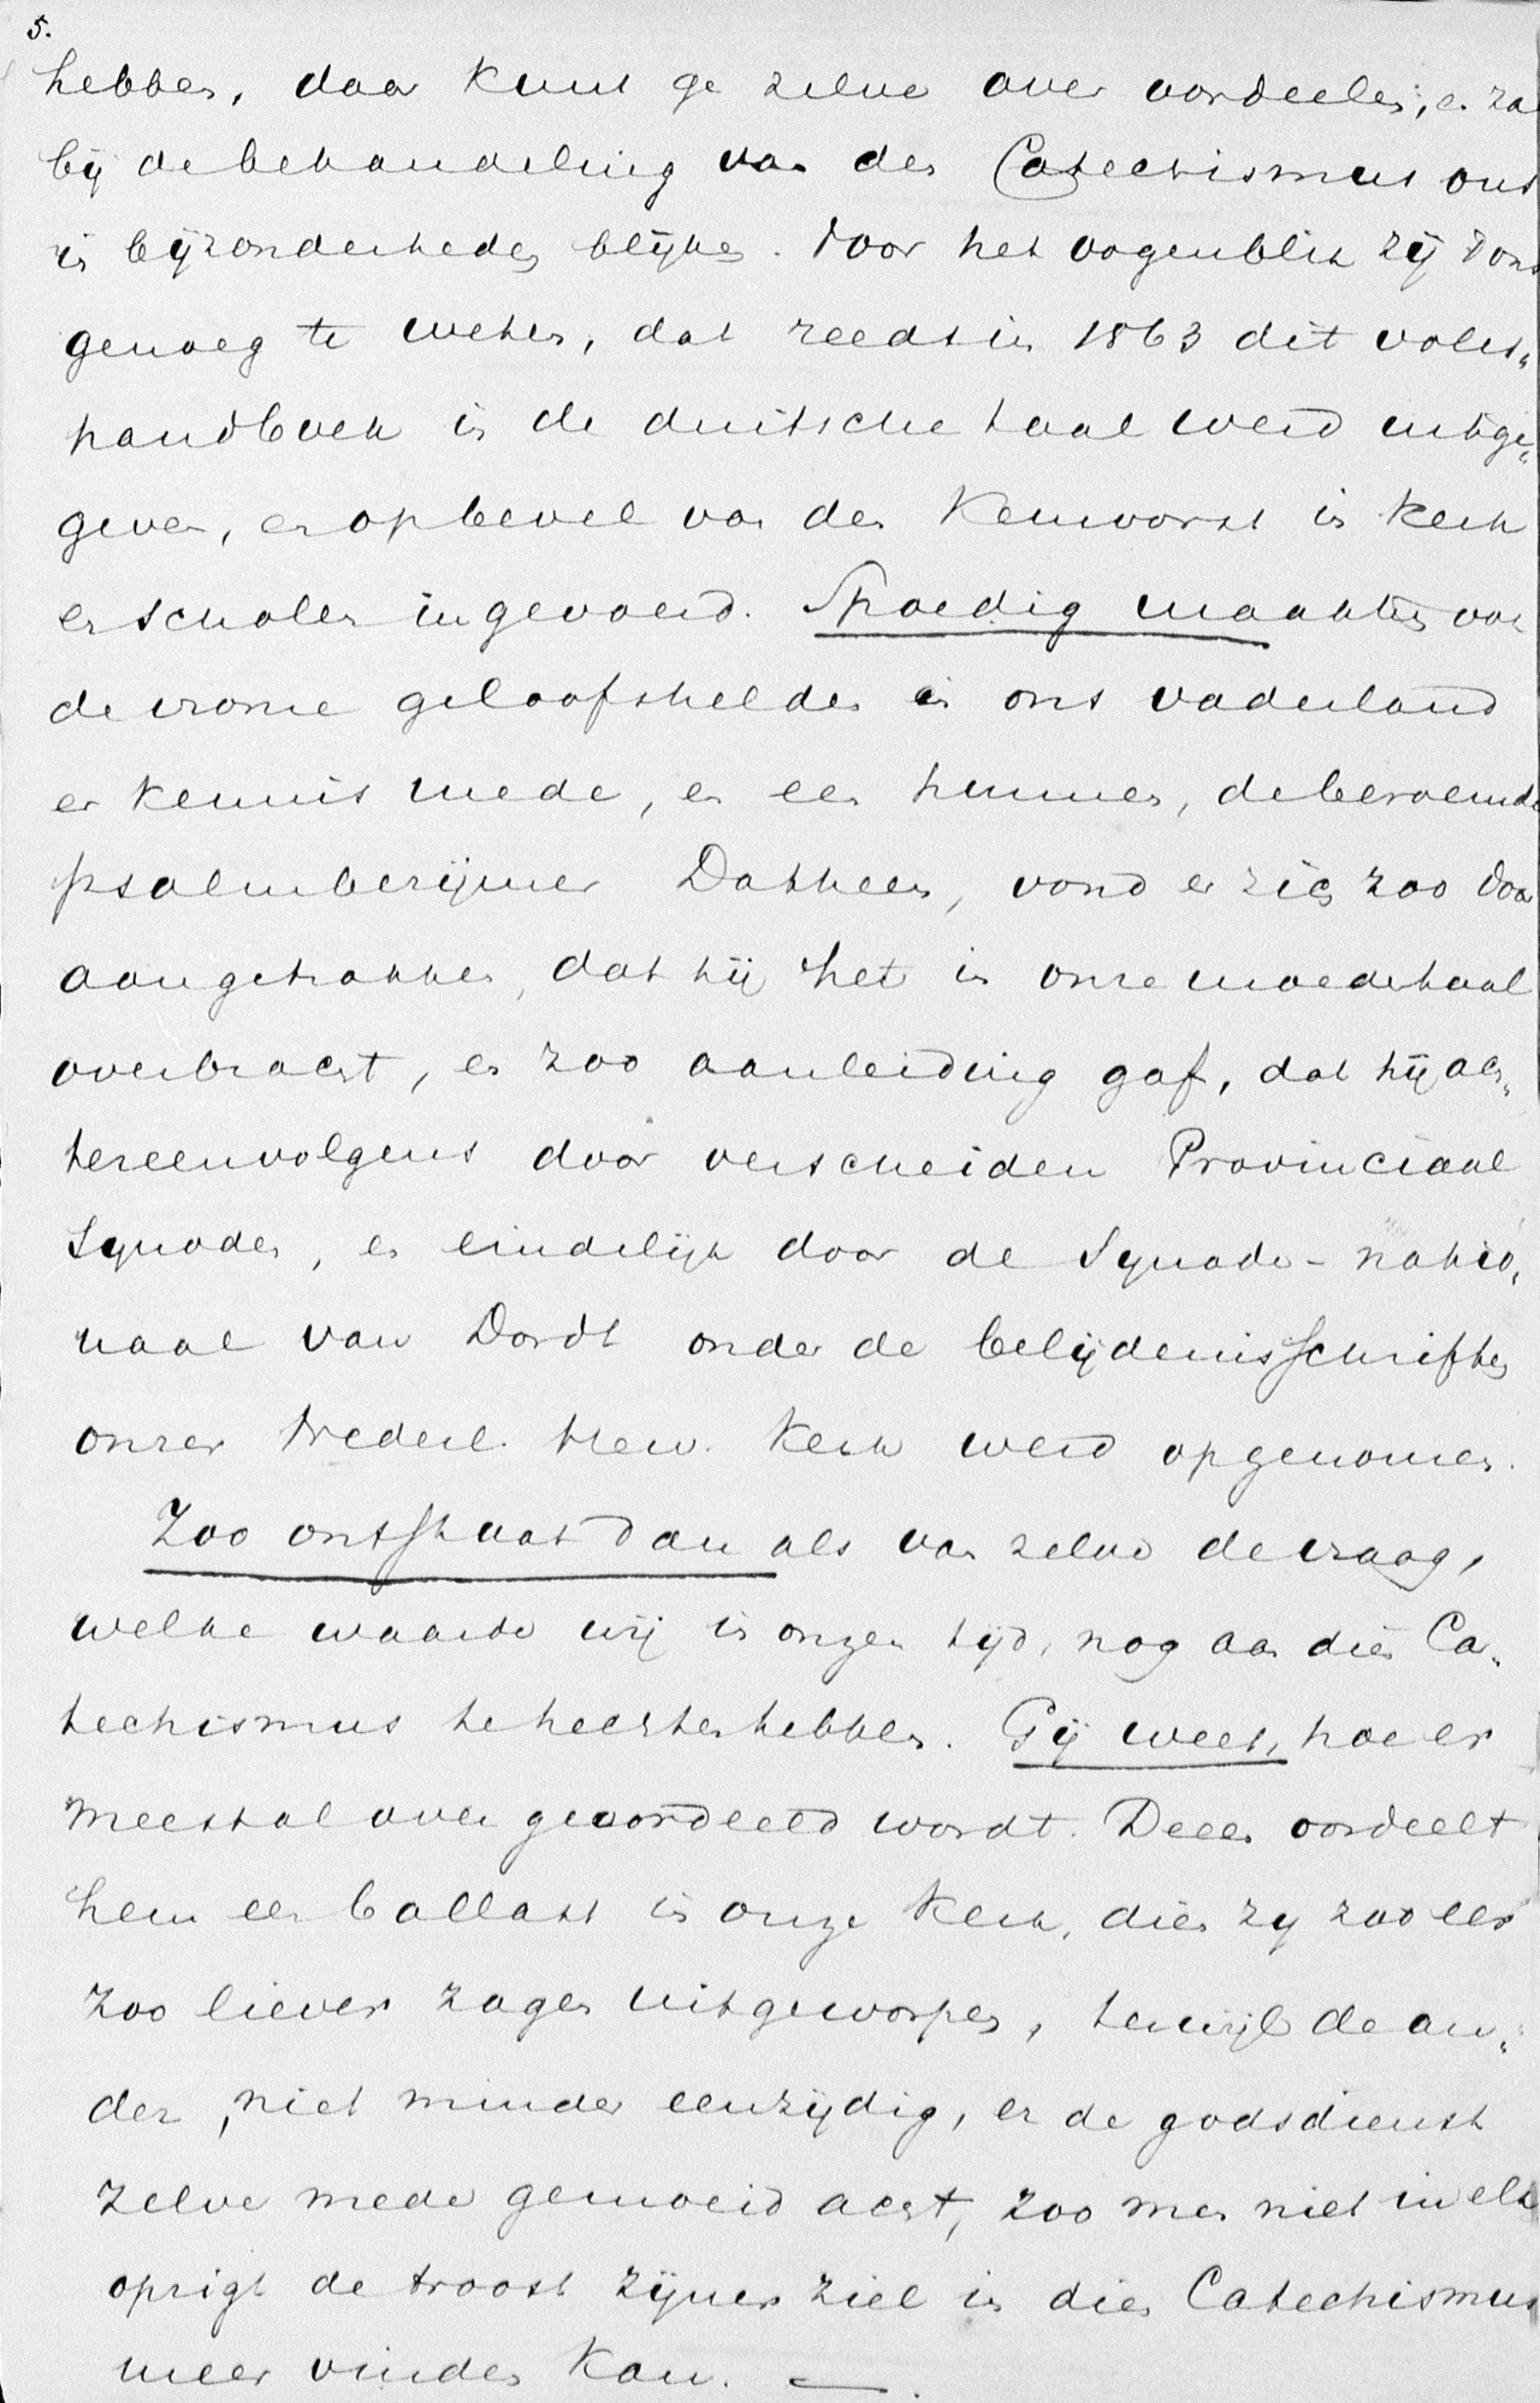 5.
hebben, daar kunt ge zelve over oordeelen, en zal
bij de behandeling van den Catechismus ons
in bijzonderheden blijken. Voor het oogenblik zij 't ons
genoeg te weten, dat reeds in 1863 dit volks„
handboek in de duitsche taal werd uitge„
geven, en op bevel van den Keurvorst in kerk
en scholen ingevoerd. Spoedig maakten ook
de vrome geloofshelden in ons vaderland
er kennis mede, en een hunner, de beroemde
psalmberijmer Datheen, vond er zich zoo door
aangetrokken, dat hij het in onze moedertaal
overbracht, en zoo aanleiding gaf, dat hij ach„
tereenvolgens door verscheiden Provinciaal
Synoden, en eindelijk door de Synode-natio„
naal van Dordt onder de belijdenisschriften
onzer Nederl. Herv. Kerk werd opgenomen.
Zoo ontstaat dan als van zelve de vraag,
welke waarde wij in onzen tijd, nog aan dien Ca„
techismus te hechten hebben. Gij weet, hoe er
meestal over geoordeeld wordt. Deeen oordeelt
hem een ballast in onze Kerk, dien zij zoo eer
zoo liever zagen uitgeworpen, terwijl de an„
der, niet minder eenzijdig, er de godsdienst
zelve mede gemoeid acht, zoo men niet in elk
opzigt de troost zijner ziel in dien Catechismus
meer vinden kan. —.